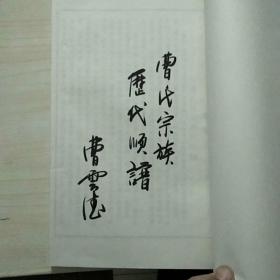 曹氏宗族
歷代順譜
曹雲德